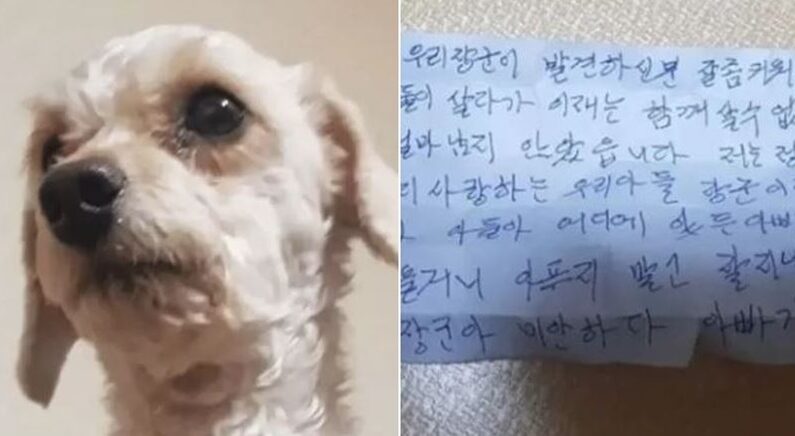 우리장군이 발견하신분 잘좀키워
둘이 살다가 이재는 함께 살수 없
얼마남지 안았읍니다 저는
사랑하는 우리아들 장군이
아들아 어디에 있든 아빠
아푸지 말고 잘
장군아 미안하다 아빠가